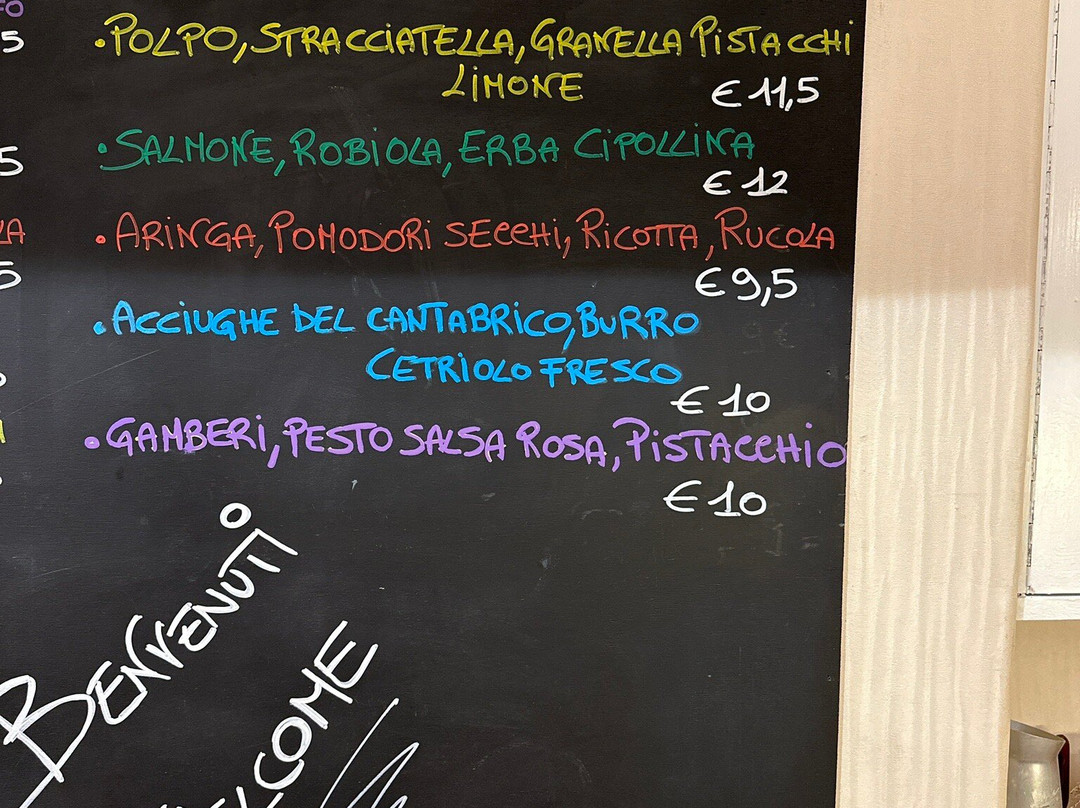 •POLPO, STRACCIATELLA, GRANELLA PISTACCHI
LIMONE
€ 11,5
•SALMONE, ROBIOLA, ERBA CIPOLLINA
€ 12
•ARINGA, POMODORI SECCHI, RICOTTA, RUCOLA
€ 9,5
•ACCIUGHE DEL CANTABRICO, BURRO
CETRIOLO FRESCO
€ 10
•GAMBERI, PESTO SALSA ROSA, PISTACCHIO
€ 10
BENVENUTI